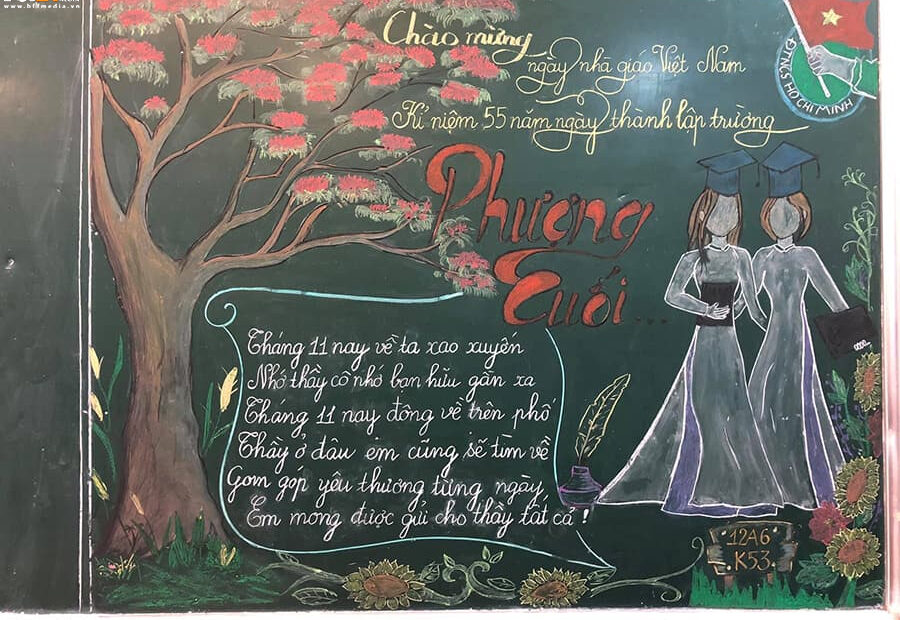 www.bhdmedia.vn
Chào mừng
ngày nhà giáo Việt Nam
Kỉ niệm 55 năm ngày thành lập trường
Phượng
Cuối...
Tháng 11 nay về ta xao xuyến
Nhớ thầy cô nhớ bạn hữu gần xa
Tháng 11 nay đông về trên phố
Thầy ở đâu em cũng sẽ tìm về
Gom góp yêu thương từng ngày
Em mong được gửi cho thầy tất cả !
HỒ CHÍ MINH
12A6
K53